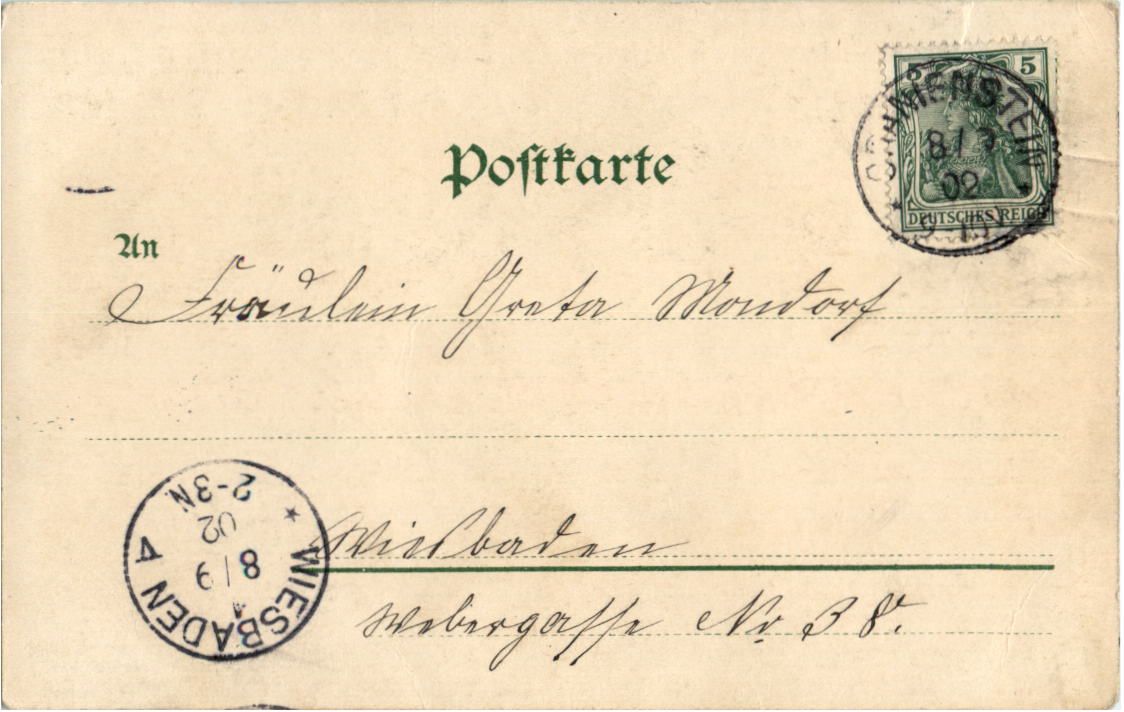 Postkarte
5 5
DEUTSCHES REICH
ORANIENSTEIN
8/9
02
An
Fräulein Greta Mondorf
Wiesbaden
Webergasse No 38.
WIESBADEN A
8/9
02
2-3N